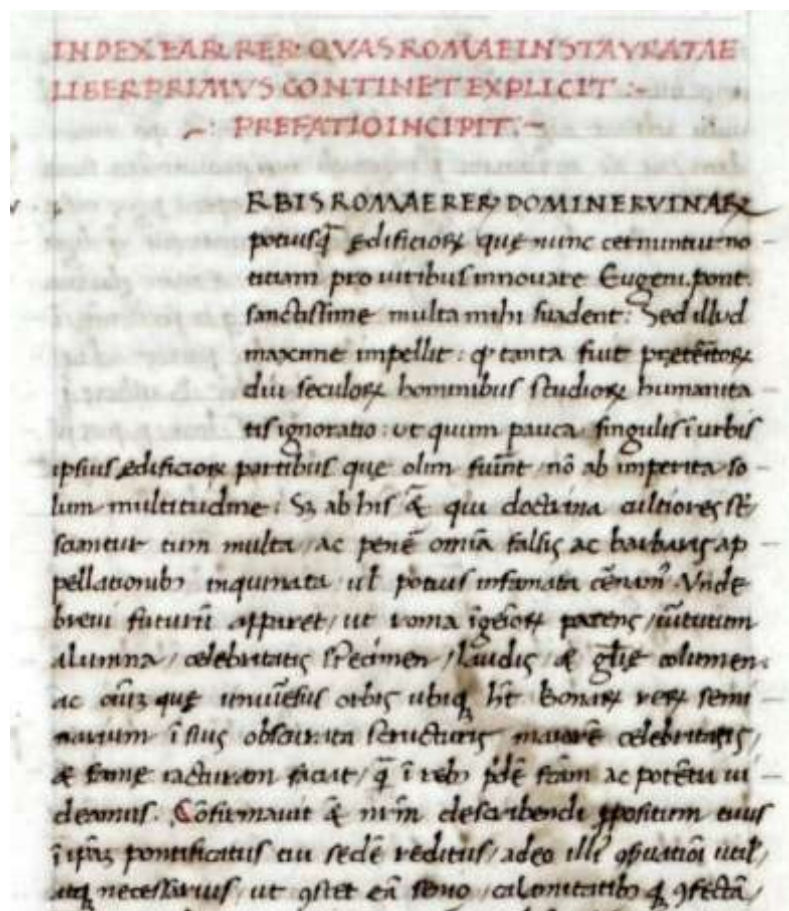 INDEX EAR RER QVAS ROMAE INSTAVRATAE
LIBER PRIMVS CONTINET EXPLICIT :~
~: PREFATIO INCIPIT. ~
RBIS ROMAE RERꝜ DOMINE RVINARꝜ
potiusq̃ ędificioꝝ quę nunc cernuntur no
titiam pro uiribus innouare Eugeni pont.
sanctissime multa mihi suadent: Sed illud
maxime impellit: ꝙ tanta fuit pręteritoꝝ
diu seculoꝝ hominibus studioꝝ humanita
tis ignoratio: ut quum pauca singulis ī urbis
ipsius ędificioꝝ partibus quę olim fuer̃nt nō ab imperita so
lum multitudine: Sꝫ ab his & qui doctrina cultiores st̃
sciantur tum multa ac penę omīa falsis ac barbaris ap
pellationibꝫ inquinata ul̃ potius infamata Vnde
breui futurū apparet/ ut roma parens/ uirtutum
alumna/ celebritatis specimen/ laudis/ & gl̃ię columen
ac quę uniuersus orbis ubiqꝫ ht̃ bonaꝝ reꝝ semi
narium ī suis obscurata structuris maiorē celebritatis/
& famę iacturam faciat/ q̃ ī rebꝫ ac potētia ui
deamus. Cōfirmauit & nr̃m describendi ꝓpositum tuus
ī ipsaꝫ pontificatus tui sedē reditus/ adeo illi ꝯseruatiōi util̃/
atqꝫ necessarius/ ut ꝯstet eā senio calamitatibꝫ qꝫ ꝯfectā/